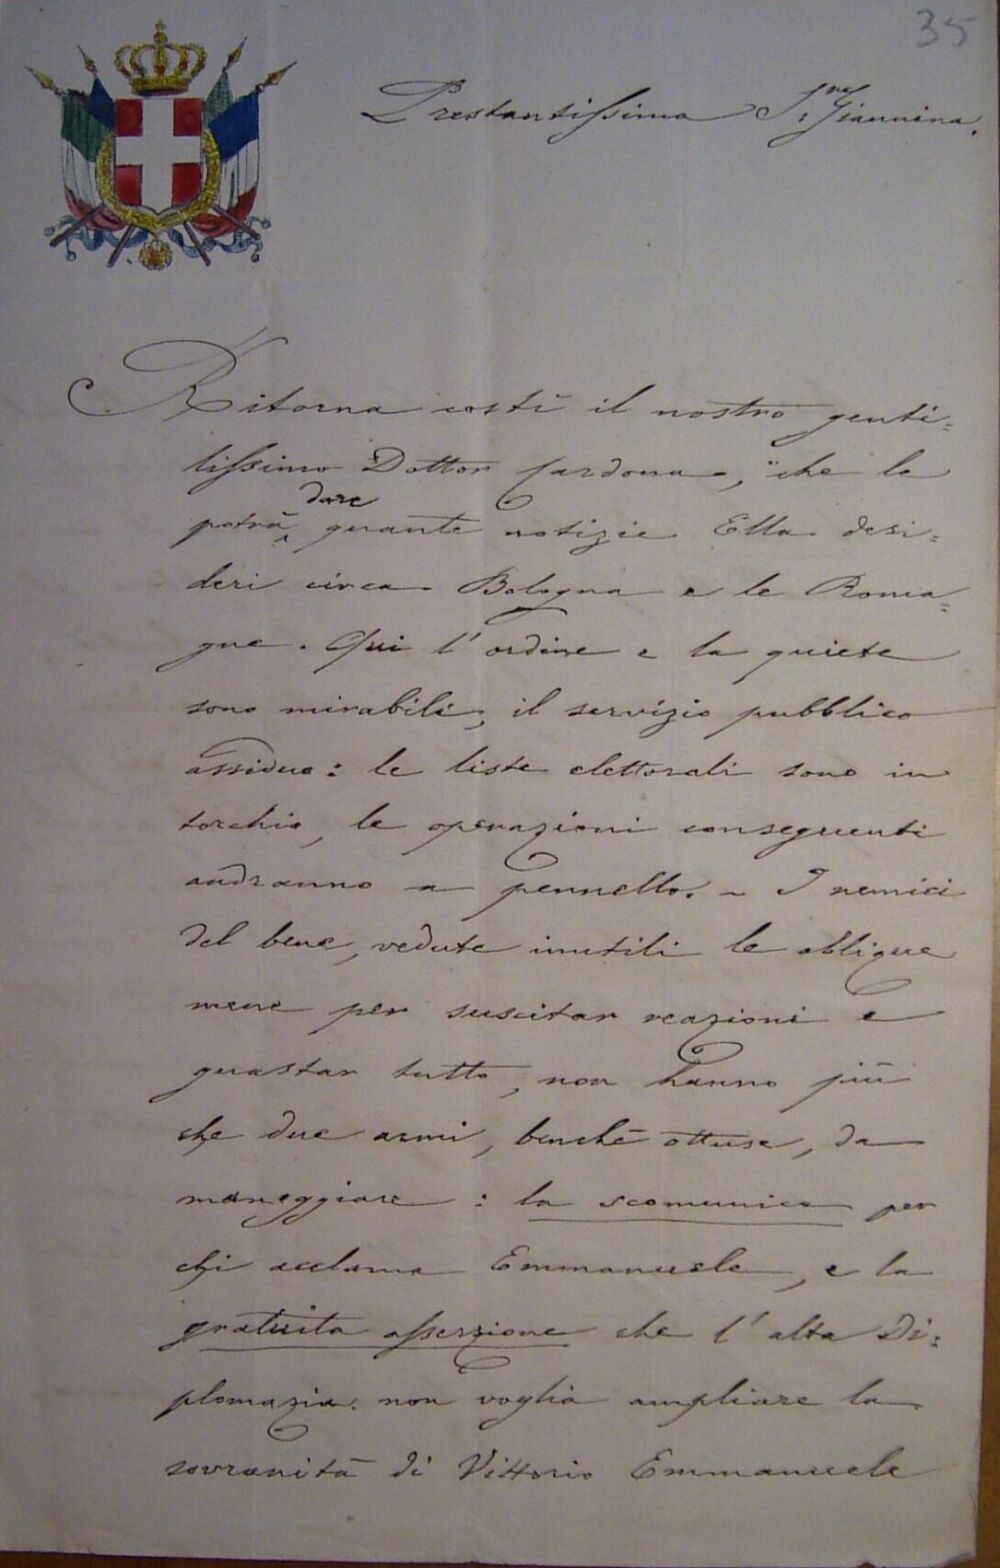 35
Prestantissima Sra Giannina.
Ritorna costì il nostro genti=
lissimo Dottor Cardona, che le
potrà dare quante notizie Ella desi=
deri circa Bologna e le Roma=
gne. Qui l'ordine e la quiete
sono mirabili, il servizio pubblico
assiduo: le liste elettorali sono in
torchio, le operazioni conseguenti
andranno a pennello. – I nemici
del bene, vedute inutili le oblique
mene per suscitar reazioni e
guastar tutto, non hanno più
che due armi, benchè ottuse, da
maneggiare: la scomunica per
chi acclama Emmanuele, e la
gratuita asserzione che l'alta Di=
plomazia non voglia ampliare la
sovranità di Vittorio Emmanuele